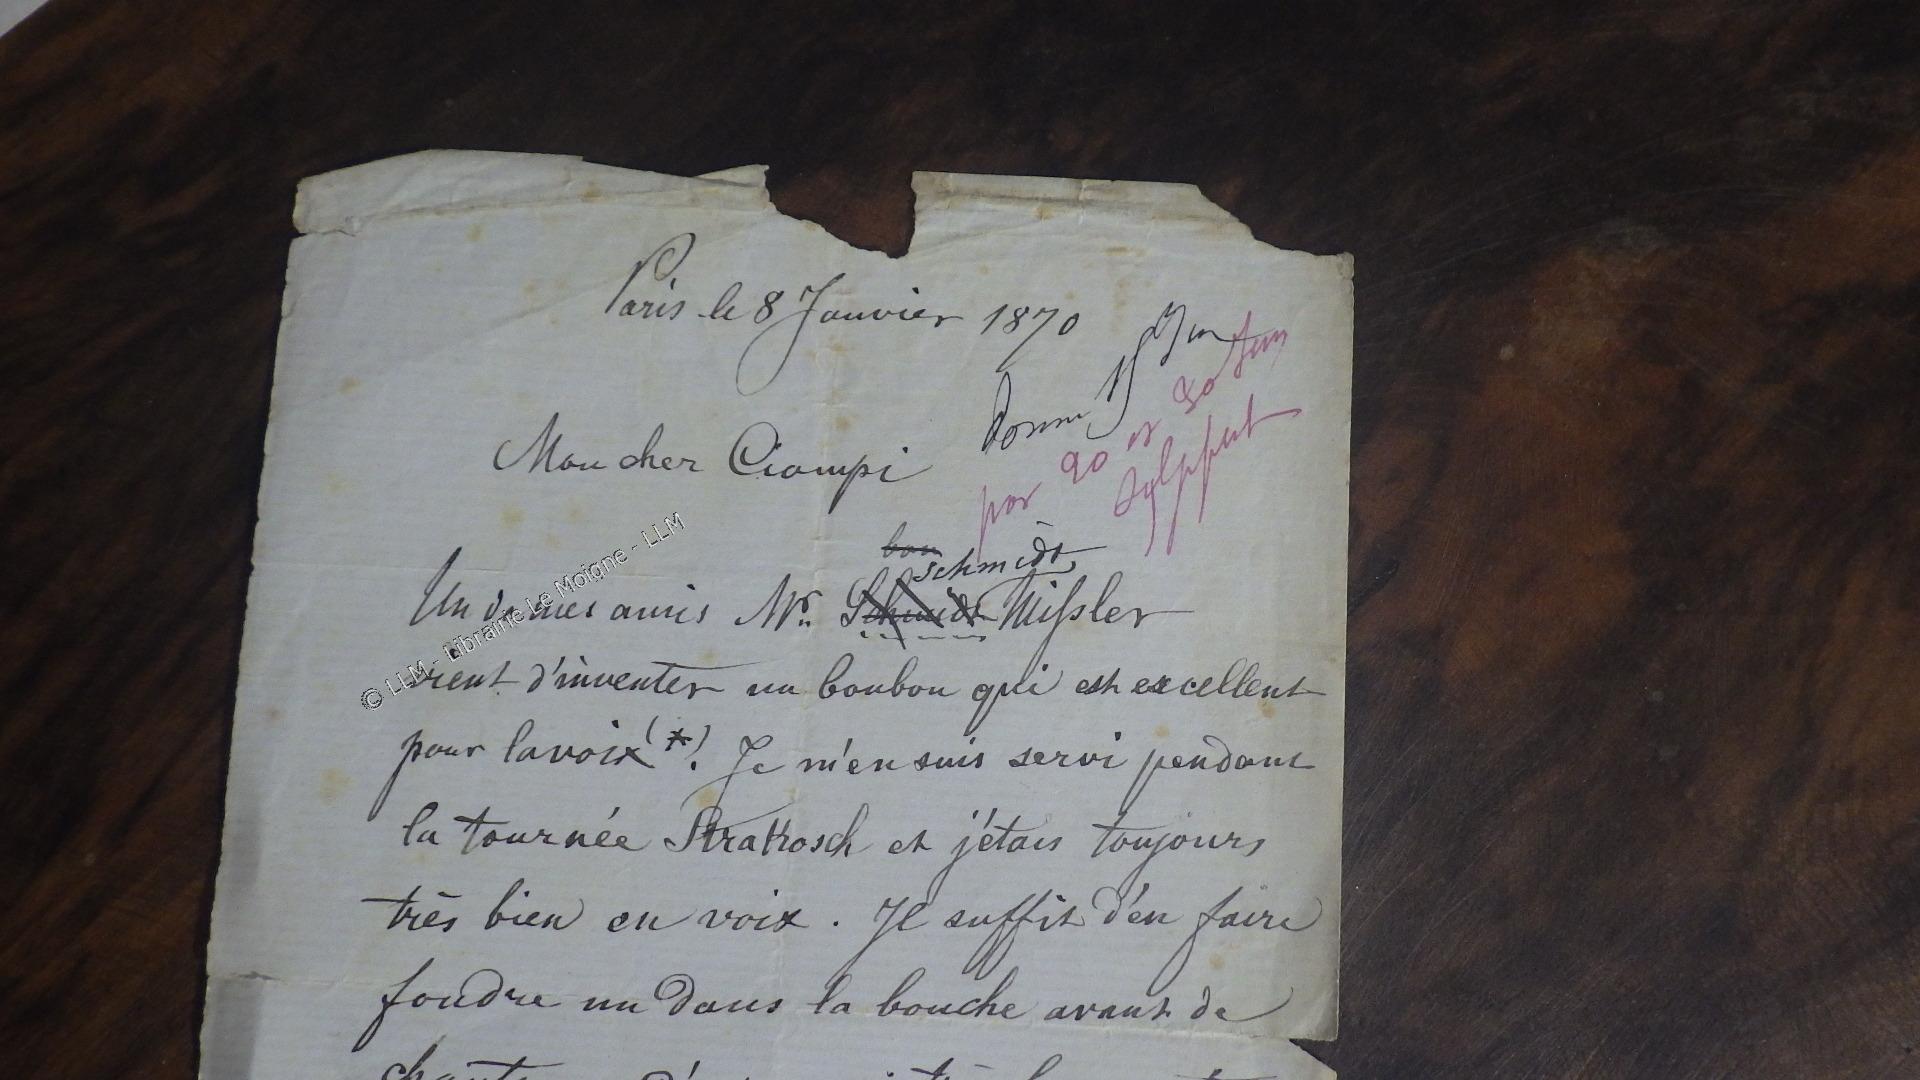 Paris le 8 Janvier 1870
donné 15
par 20 et 30
Mon cher Ciampi
bon
Schmidt
Un de mes amis Mr. Schmidt Missler
vient d'inventer un bonbon qui est excellent
pour la voix (*)! Je m'en suis servi pendant
la tournée Strakosch et j'étais toujours
très bien en voix. Il suffit d'en faire
fondre un dans la bouche avant de
© LLM - Librairie Le Moigne - LLM